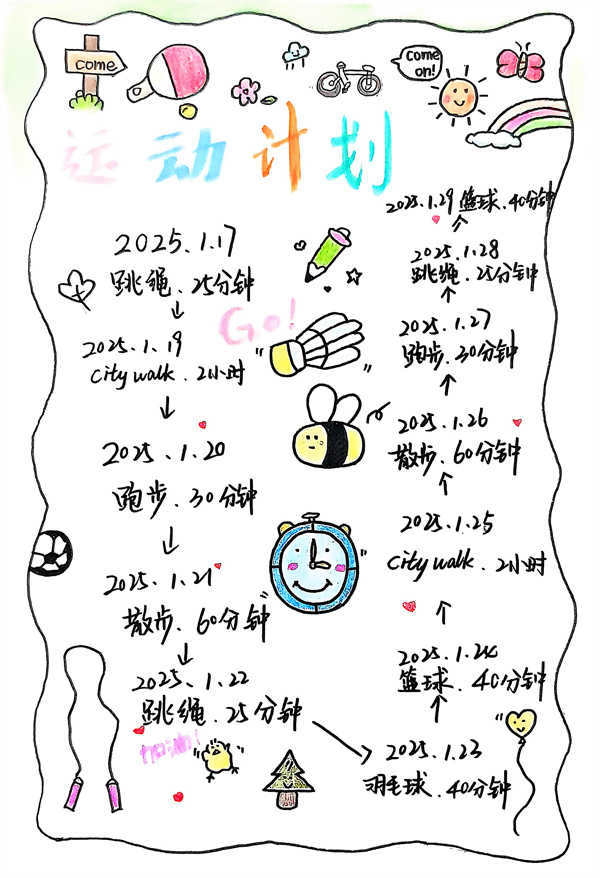 come
come
on!
运动计划
2025.1.17
跳绳.25分钟
Go!
2025.1.19
city walk.2小时
2025.1.20
跑步.30分钟
2025.1.21
散步.60分钟
2025.1.22
跳绳.25分钟
加油!
2025.1.23
羽毛球.40分钟
2025.1.24
篮球.40分钟
2025.1.25
city walk.2小时
2025.1.26
散步.60分钟
2025.1.27
跑步.30分钟
2025.1.28
跳绳.25分钟
2025.1.29 篮球.40分钟